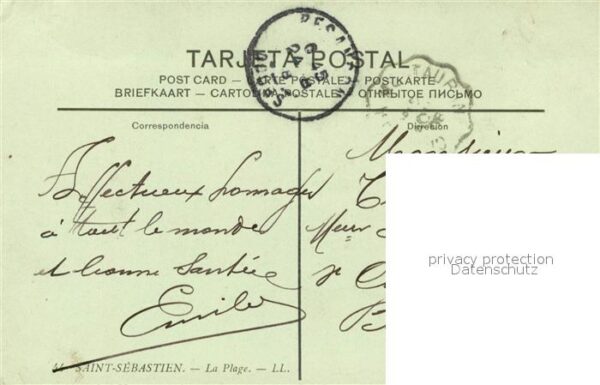 TARJETA POSTAL
POST CARD — CARTE POSTALE — POSTKARTE
BRIEFKAART — CARTOLINA POSTALE — ОТКРЫТОЕ ПИСЬМО
Correspondencia
Dirresion
Affectueux hommages
à tout le monde
et bonne santée
Emile
Monsieur
privacy protection
Datenschutz
SAINT-SÉBASTIEN. — La Plage. — LL.